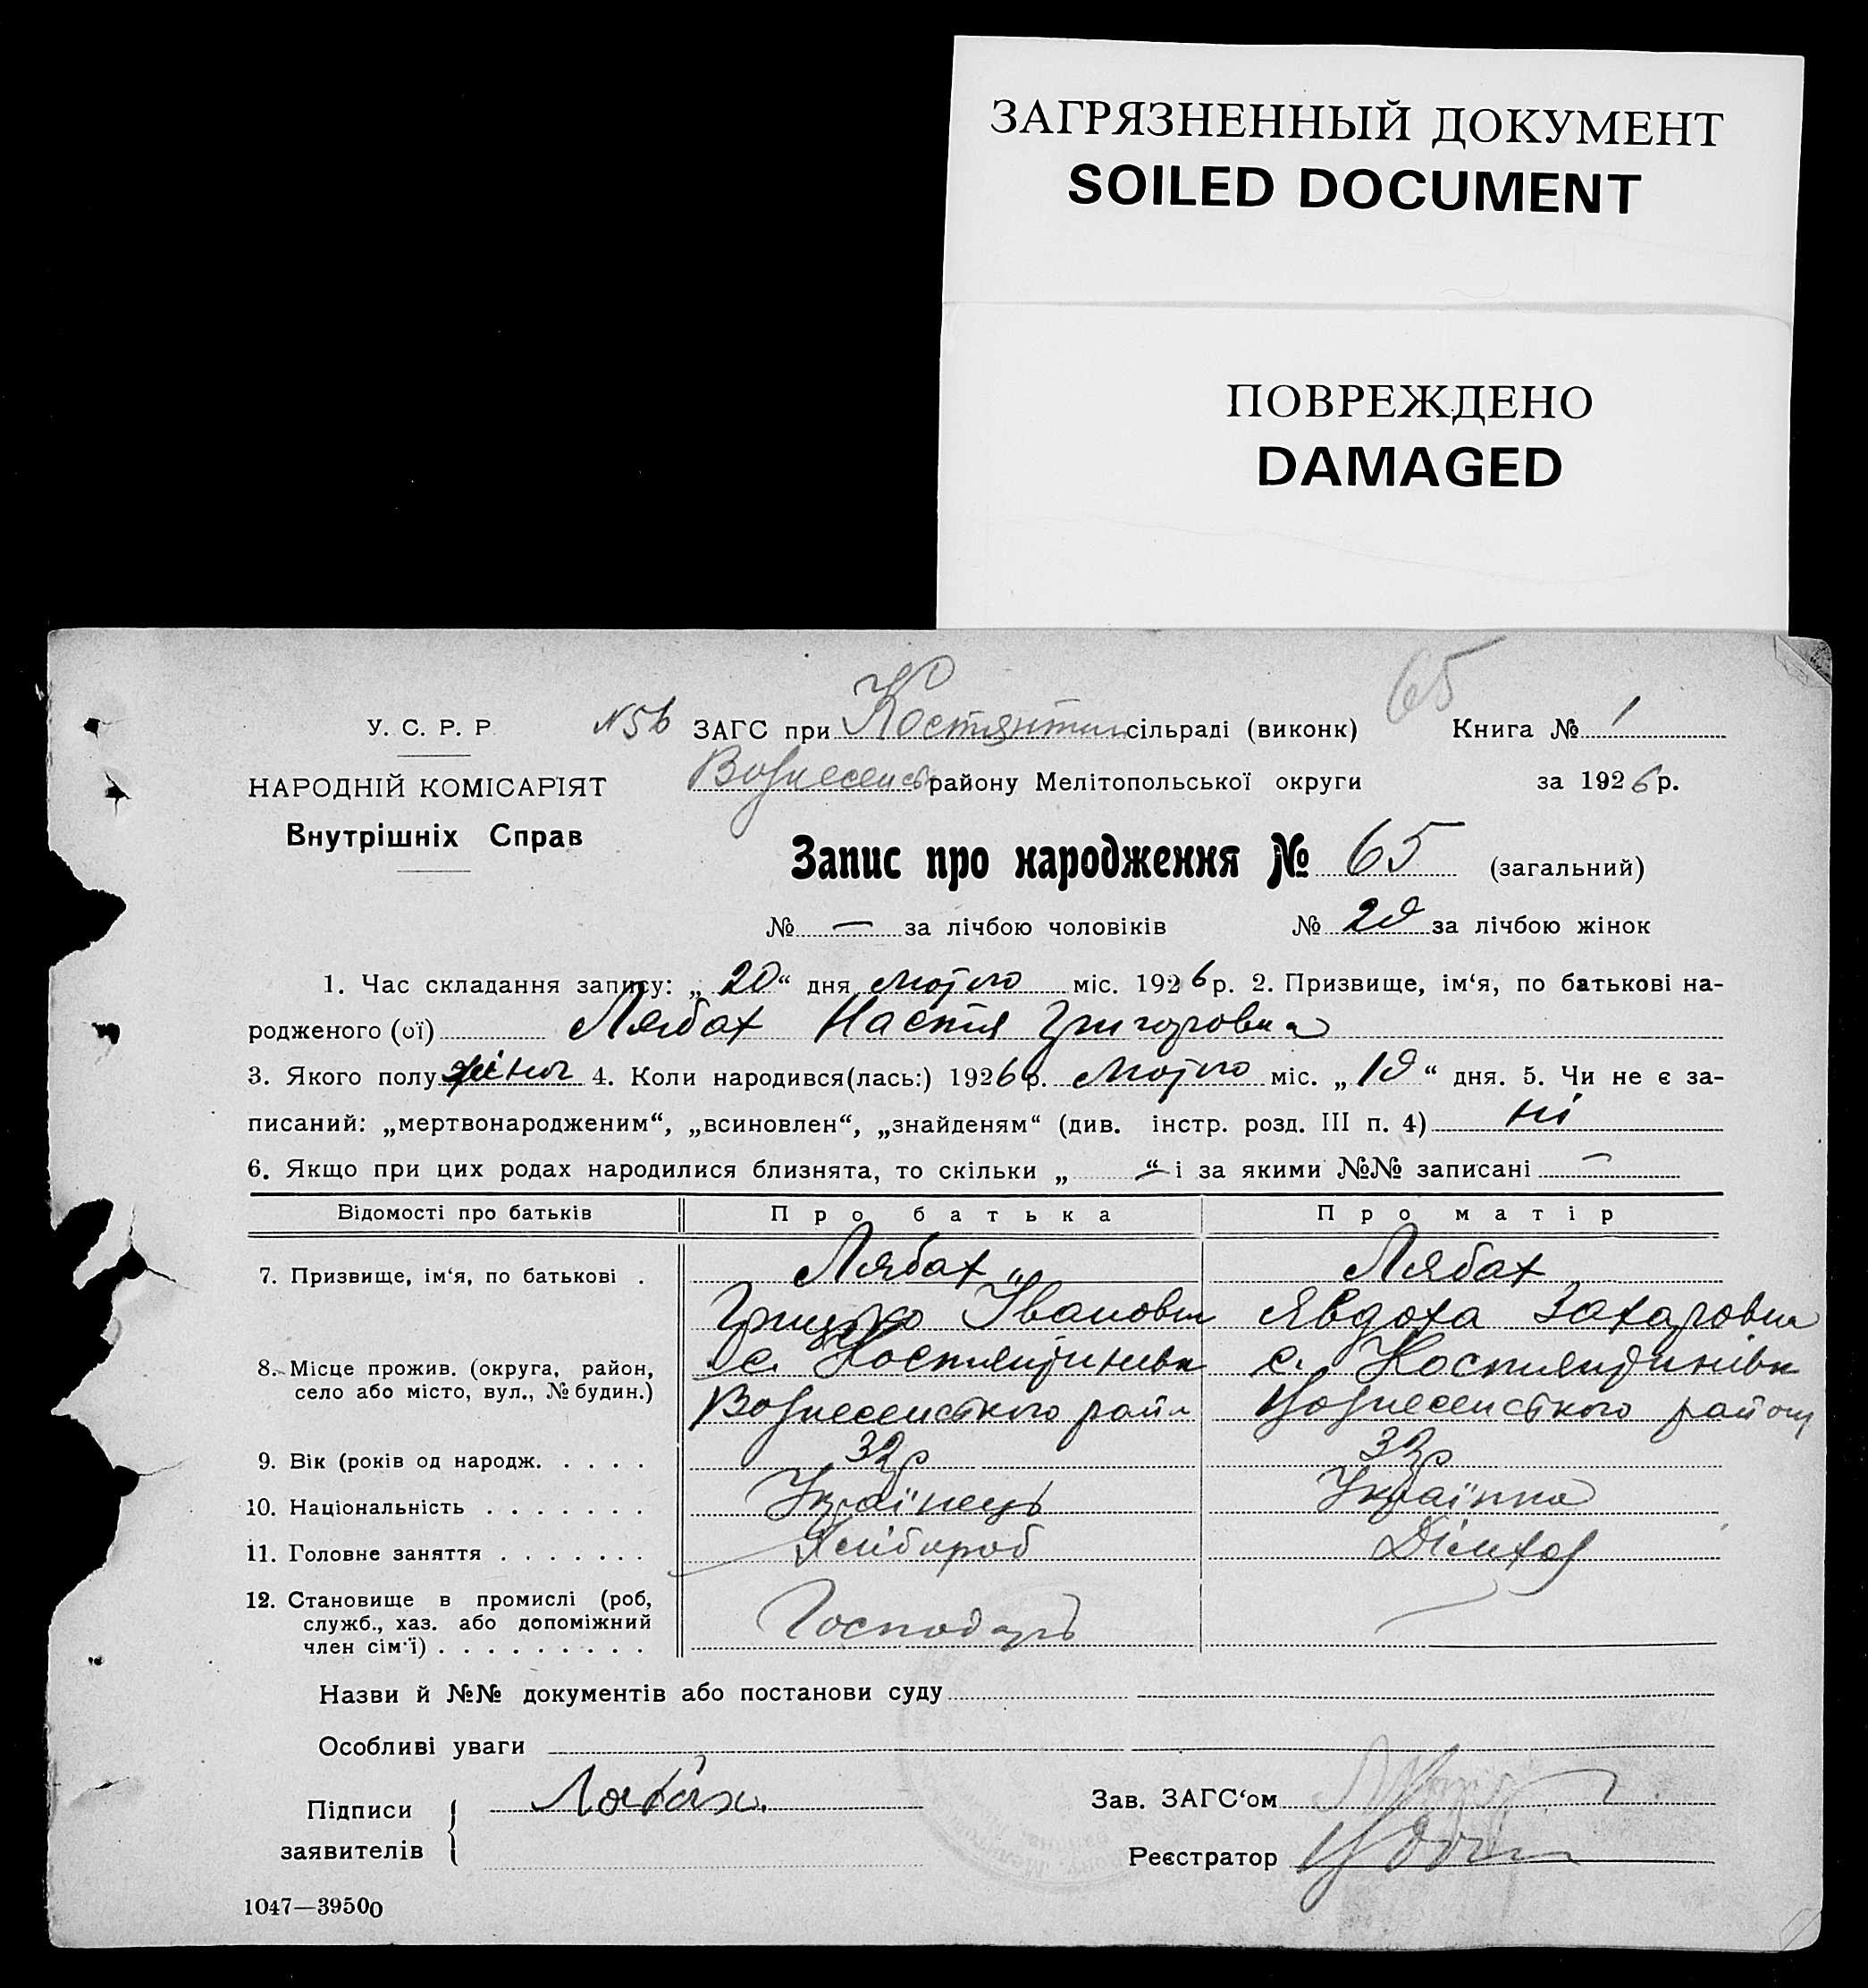 ЗАГРЯЗНЕННЫЙ ДОКУМЕНТ
SOILED DOCUMENT
ПОВРЕЖДЕНО
DAMAGED
65
У. С. Р. Р. ЗАГС при Костянтин сільраді (виконк) Книга № 1
НАРОДНІЙ КОМІСАРІЯТ Вознесенськ району Мелітопольської округи за 1926 р.
Внутрішніх Справ
Запис про народження № 65 (загальний)
№ — за лічбою чоловіків № за лічбою жінок
1. Час складання запису: „ 20 “ дня лютого міс. 1926 р. 2. Призвище, ім‘я, по батькові на-
родженого (ої) Лябах Настя Григоровна
3. Якого полу жіноч 4. Коли народився(лась:) 1926 р. лютого міс. „ “ дня. 5. Чи не є за-
писаний: „мертвонародженим“, „всиновлен“, „знайденям“ (див. інстр. розд. III п. 4) ні
6. Якщо при цих родах народилися близнята, то скільки „ — “ і за якими №№ записані —
Відомості про батьків Про батька Про матір
7. Призвище, ім‘я, по батькові . Лябах Лябах
Грицько Іванович Явдоха Захаровна
8. Місце прожив. (округа, район, с. Костянтинівк с. Костянтинівк
село або місто, вул., № будин.) Вознесенського райн Вознесенського району
9. Вік (років од народж. . . . . 32 р 32 р
10. Національність . . . . . . . Українець Українка
11. Головне заняття . . . . . . . Хлібороб
12. Становище в промислі (роб, Господарь —
служб., хаз. або допоміжний
член сім‘ї) . . . . . . . . .
Назви й №№ документів або постанови суду
Особливі уваги
Підписи
заявителів
Зав. ЗАГС‘ом
Реєстратор
1047—39500